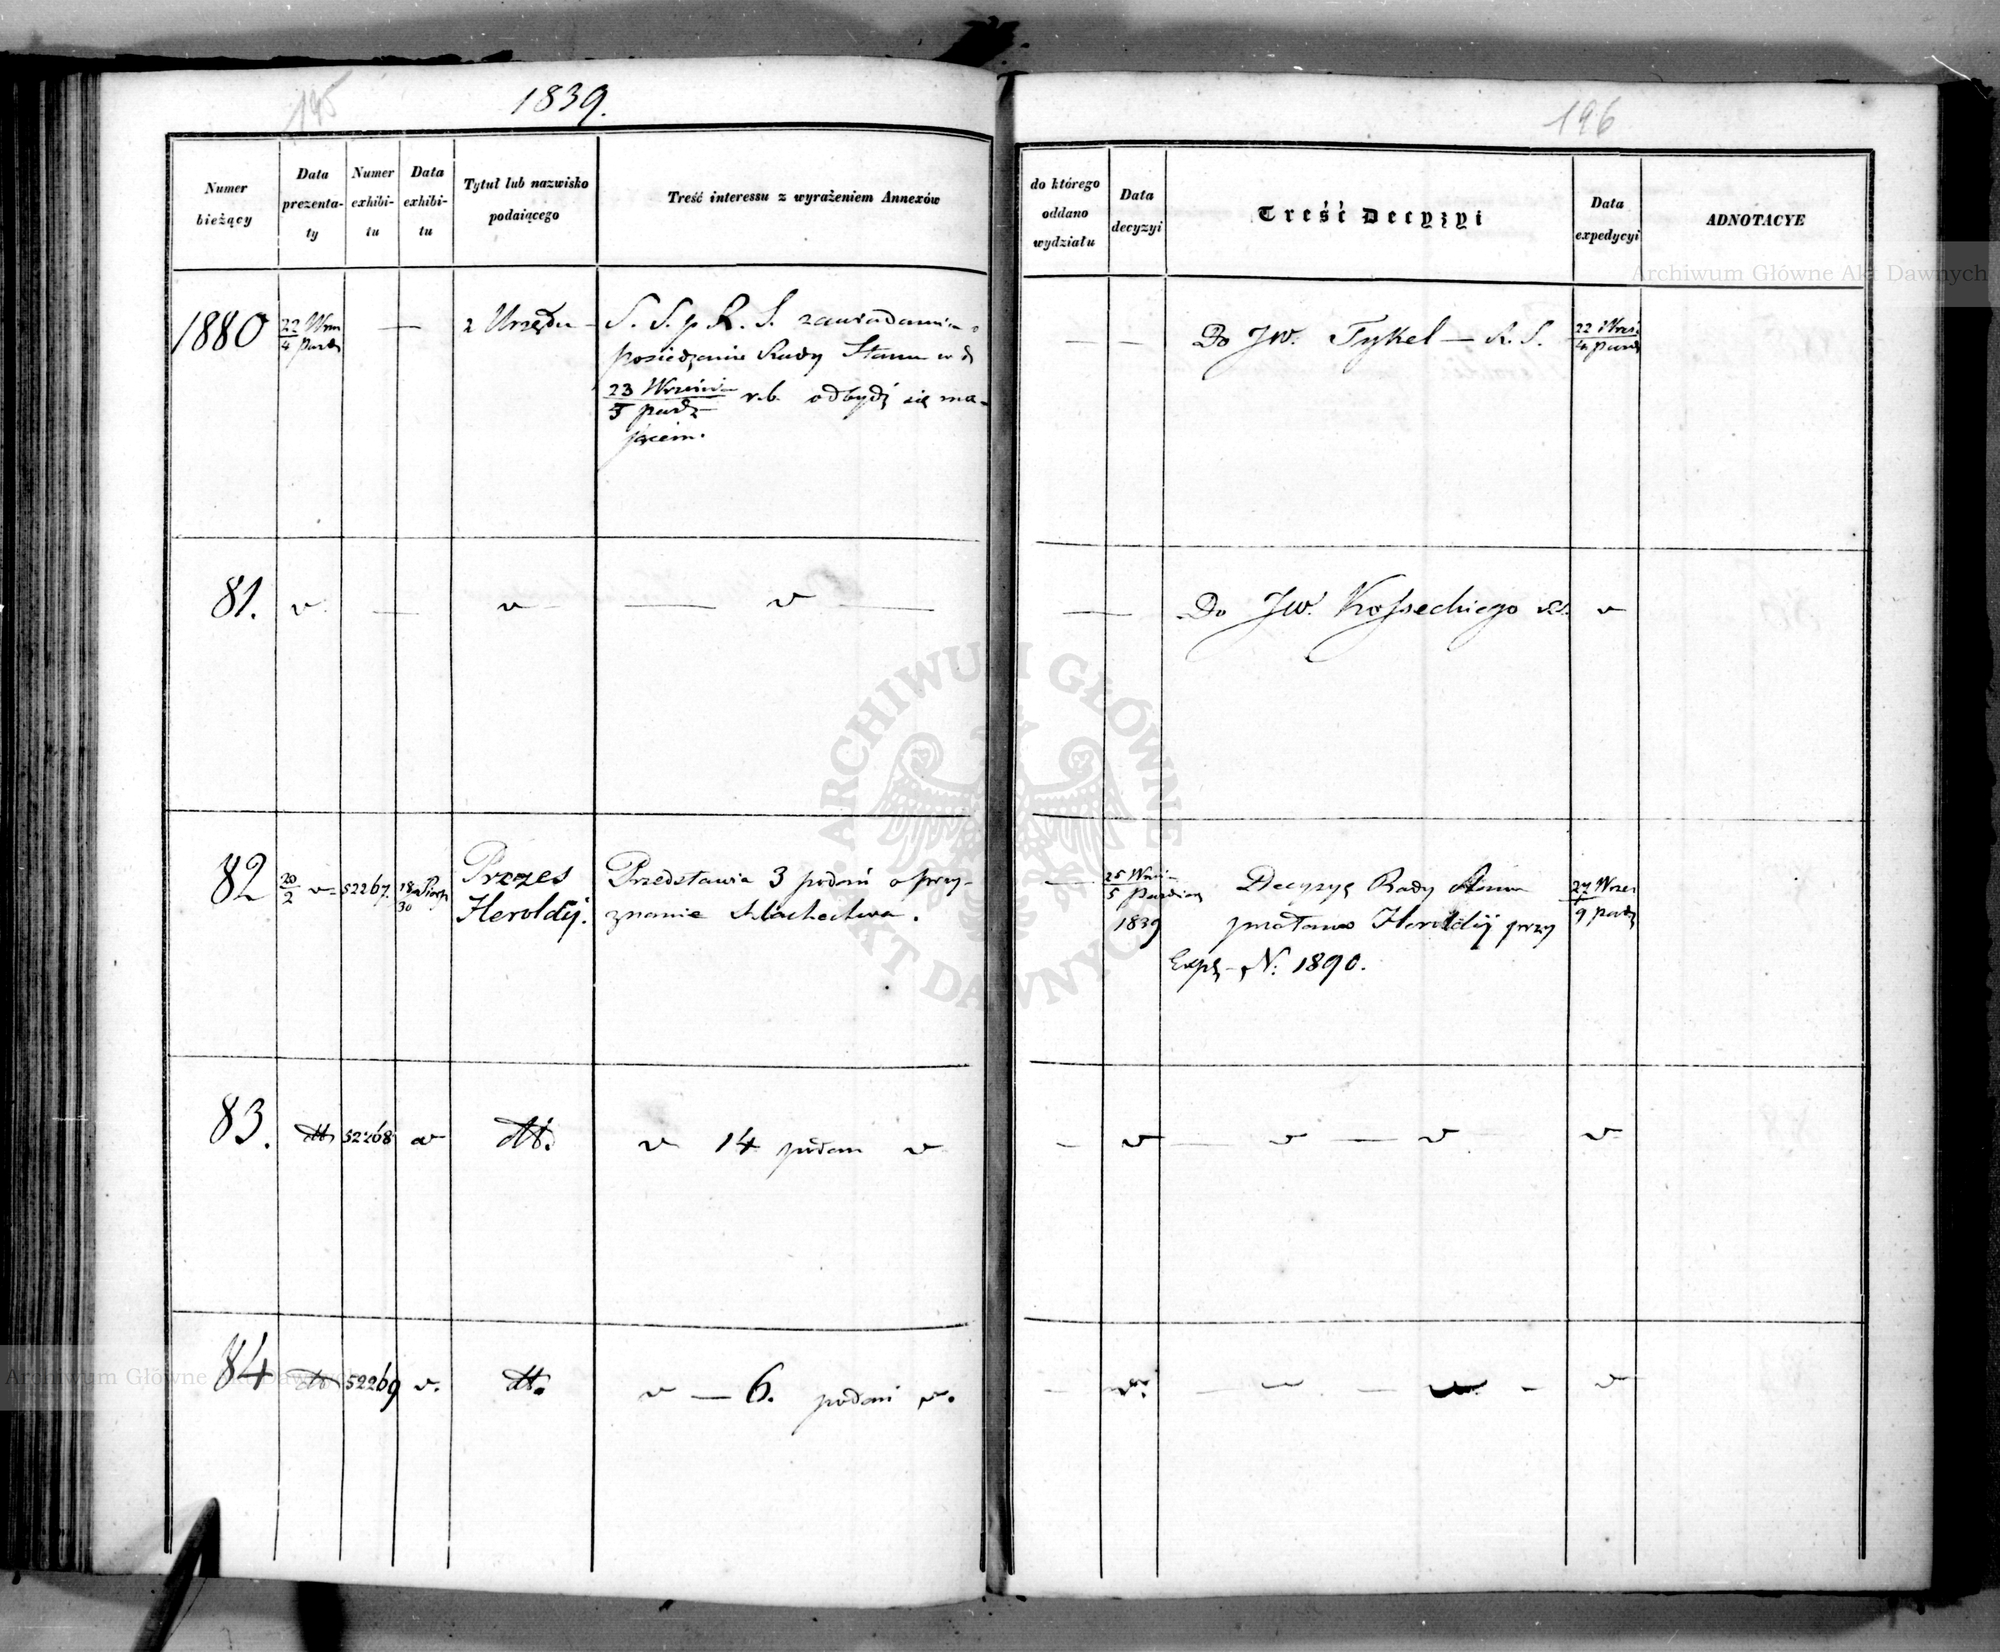 195
1839.
Numer bieżący
Data prezenta-ty
Numer exhibi-tu
Data exhibi-tu
Tytuł lub nazwisko podaiącego
Treść interessu z wyrażeniem Annexów
1880
22 Wrz
4 paźd
—
z Urzędu
S. S. p R. S. zawiadamia o
posiedzenie Rady Stanu w d
23 Września
5 paźdz
r.b. odbydź się ma-
jącem.
81.
v
—
v
— v —
82
20
2
v
52267.
18
30
Prezes
Heroldÿ.
Przedstawia 3 podań o przy-
znanie szlachectwa.
83.
dtt
52268
v
dtt.
v 14 podań v
84
dtt
52269
v.
dtt.
v — 6. podań v.
196
do którego oddano wydziału
Data decyzyi
Treść Decyzyi
Data expedycyi
ADNOTACYE
— —
Do JW. Tykel — R. S.
22 Wrześ
4 paźd
—
Do JW. Kosseckiego
v
—
25 Wrześ
5 Paźdier
1839
Decyzyę Rady Stanu
przesłano Heroldÿ przy
Exp N: 1890.
27 Wrześ
9 paźd
— v — v — v v
— v. — v — v — v
Archiwum Główne Akt Dawnych
ARCHIWUM GŁÓWNE AKT DAWNYCH
Archiwum Główne Akt Dawnych